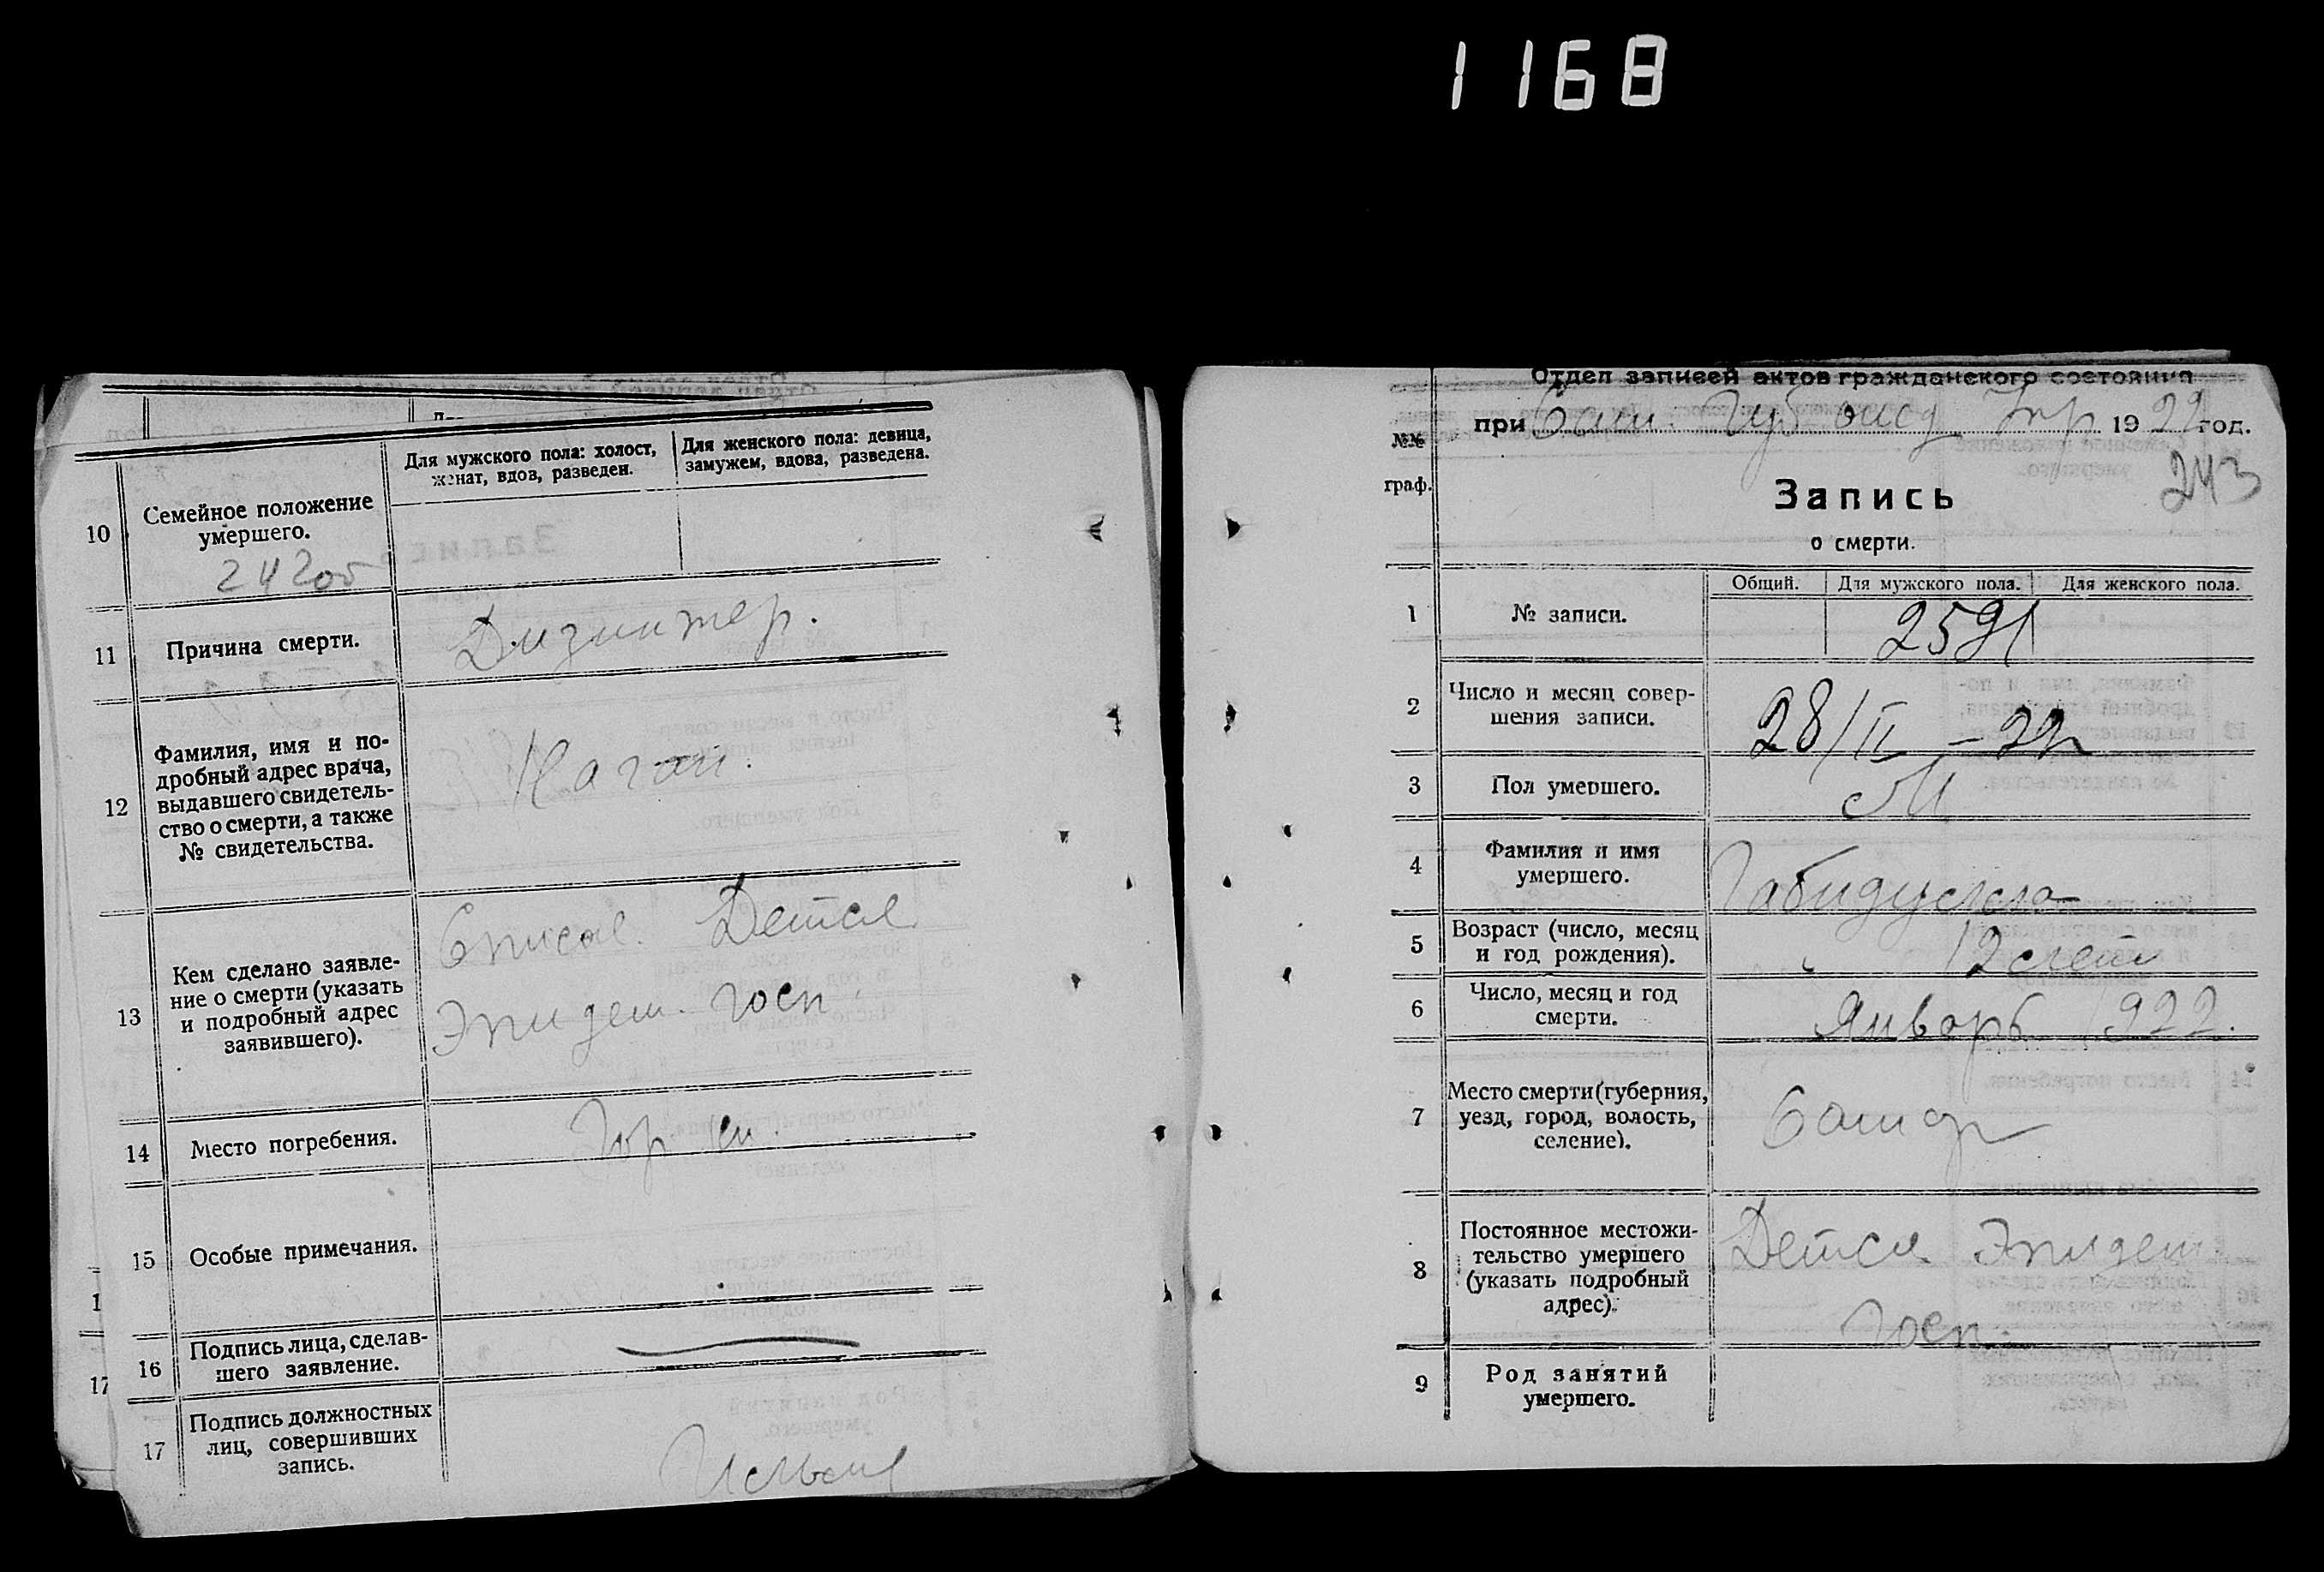 1168
10
Семейное положение
умершего.
242об
Для мужского пола: холост,
женат, вдов, разведен.
Для женского пола: девица,
замужем, вдова, разведена.
11
Причина смерти.
Дизинтер.
12
Фамилия, имя и по-
дробный адрес врача,
выдавшего свидетель-
ство о смерти, а также
№ свидетельства.
Каган.
13
Кем сделано заявле-
ние о смерти (указать
и подробный адрес
заявившего).
Детск
Эпидем. госп.
14
Место погребения.
Гор.
15
Особые примечания.
16
Подпись лица, сделав-
шего заявление.
17
Подпись должностных
лиц, совершивших
запись.
1
17
Отдел записей актов гражданского состояния
при Баш. Губ 1922 год.
243
№№
граф.
Запись
о смерти.
1
№ записи.
Общий.
Для мужского пола.
Для женского пола.
2591
2
Число и месяц совер-
шения записи.
28/II – 22
3
Пол умершего.
М
4
Фамилия и имя
умершего.
Габидулла
5
Возраст (число, месяц
и год рождения).
12 лет
6
Число, месяц и год
смерти.
Январь 1922.
7
Место смерти (губерния,
уезд, город, волость,
селение).
8
Постоянное местожи-
тельство умершего
(указать подробный
адрес).
Детск. Эпидем
госп.
9
Род занятий
умершего.